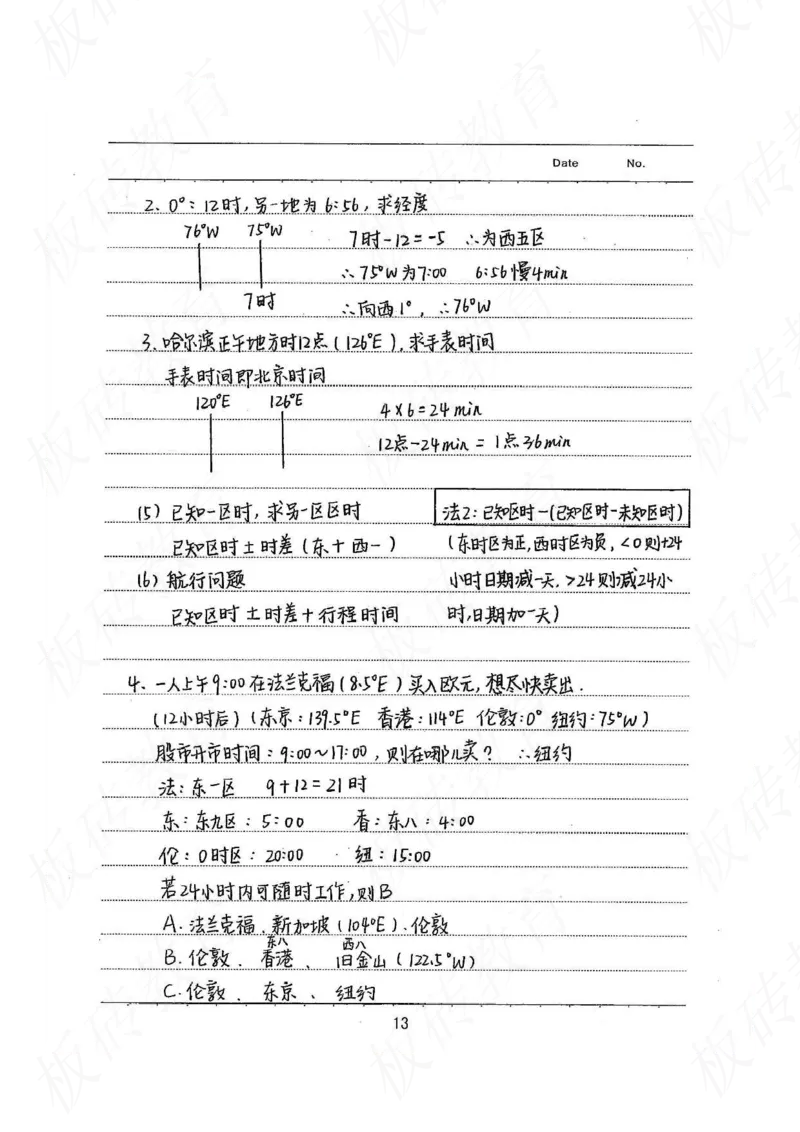 Date No.
2、0°：12时，另一地为 6:56，求经度
76°W 75°W
7时-12=-5 ∴为西五区
∴75°W为7:00 6:56慢4min
7时
∴向西1°，∴76°W
3、哈尔滨正午地方时12点（126°E），求手表时间
手表时间即北京时间
120°E 126°E
4×6=24min
12点-24min = 1点36min
(5) 已知一区时，求另一区区时 法2：已知区时-(已知区时-未知区时)
已知区时±时差（东+ 西-） （东时区为正，西时区为负，<0则+24
(6) 航行问题 小时日期减一天，>24则减24小
已知区时±时差+行程时间 时，日期加一天）
4、一人上午9:00在法兰克福（8.5°E）买入欧元，想尽快卖出．
（12小时后）（东京：139.5°E 香港：114°E 伦敦：0° 纽约：75°W）
股市开市时间：9:00～17:00，则在哪儿卖？ ∴纽约
法：东一区 9+12=21时
东：东九区：5:00 香：东八：4:00
伦：0时区：20:00 纽：15:00
若24小时内可随时工作，则B
A．法兰克福、新加坡（104°E）、伦敦
东八 西八
B．伦敦、香港、旧金山（122.5°W）
C．伦敦、东京、纽约
13
板砖教育